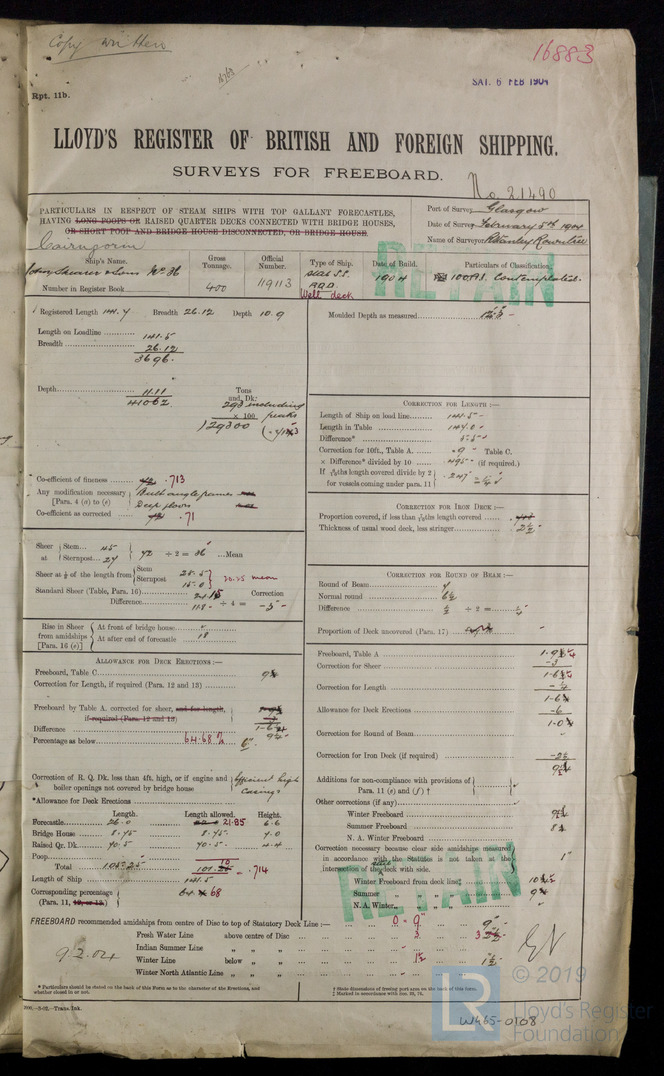 Copy written
16883
SAT. 6 FEB 1904
Rpt. 11b.
LLOYD'S REGISTER OF BRITISH AND FOREIGN SHIPPING.
SURVEYS FOR FREEBOARD.
No. 21490
PARTICULARS IN RESPECT OF STEAM SHIPS WITH TOP GALLANT FORECASTLES,
HAVING LONG POOPS OR RAISED QUARTER DECKS CONNECTED WITH BRIDGE HOUSES,
OR SHORT POOP AND BRIDGE HOUSE DISCONNECTED, OR BRIDGE HOUSE.
Port of Survey Glasgow
Date of Survey February 5th 1904
Name of Surveyor Stanley Rowntree
Cairngorm
Ship's Name. Gross Tonnage. Official Number. Type of Ship. Date of Build. Particulars of Classification.
John Shearer & Sons No 36
Number in Register Book 400 119113 Steel S.S. R.Q.D. Well deck 1904 100A1. Contemplated.
RETAIN
Registered Length 141.7 Breadth 26.12 Depth 10.9
Moulded Depth as measured
Length on Loadline 141.5
Breadth 26.12
3696.
Depth 11.11
41062.
Tons und. Dk. 293 including peaks
× 100
129300
CORRECTION FOR LENGTH :—
Length of Ship on load line 141.5
Length in Table 147.0
Difference* 5.5
Correction for 10ft., Table A. .9 Table C.
× Difference* divided by 10 .495 (if required.)
If 6/10ths length covered divide by 2 for vessels coming under para. 11 .247
Co-efficient of fineness .713
Any modification necessary [Para. 4 (a) to (e)] Bulb angle frames
Deep floors
Co-efficient as corrected .71
CORRECTION FOR IRON DECK :—
Proportion covered, if less than 7/10ths length covered
Thickness of usual wood deck, less stringer 2½
Sheer at Stem 45
Sternpost 27 72 ÷ 2 = 36 ...Mean
Sheer at ⅛ of the length from Stem 25.5
Sternpost 15.0 20.25 mean
Standard Sheer (Table, Para. 16) 24.15 Correction
Difference 11.8 ÷ 4 = -3
CORRECTION FOR ROUND OF BEAM :—
Round of Beam 7
Normal round 6½
Difference ½ ÷ 2 = ¼
Proportion of Deck uncovered (Para. 17)
Rise in Sheer from amidships [Para. 16 (e)]
At front of bridge house
At after end of forecastle 18
ALLOWANCE FOR DECK ERECTIONS :—
Freeboard, Table C
Correction for Length, if required (Para. 12 and 13)
Freeboard by Table A. corrected for sheer, and for length, if required (Para. 12 and 13)
Difference
Percentage as below 64.68 % 6"
Freeboard, Table A
Correction for Sheer -3
Correction for Length -¼
Allowance for Deck Erections -6
Correction for Round of Beam
Correction for Iron Deck (if required) -2½
Correction of R. Q. Dk. less than 4ft. high, or if engine and boiler openings not covered by bridge house Efficient high Casings
*Allowance for Deck Erections
Length. Length allowed. Height.
Forecastle 26.0 21.85 6.6
Bridge House 8.75 8.75 7.0
Raised Qr. Dk. 70.5 70.5 4.4
Poop
Total 105.25 = .714
Length of Ship 141.5
Corresponding percentage (Para. 11, 12, or 13.) 64.68
Additions for non-compliance with provisions of Para. 11 (e) and (f) †
Other corrections (if any)
Winter Freeboard
Summer Freeboard
N. A. Winter Freeboard
Correction necessary because clear side amidships measured in accordance with the Statutes is not taken at the intersection of the steel deck with side. 1"
RETAIN
Winter Freeboard from deck line‡
Summer " " "
N. A. Winter " " "
FREEBOARD recommended amidships from centre of Disc to top of Statutory Deck Line :— 0 - 9" 9"
Fresh Water Line above centre of Disc 3
Indian Summer Line " "
Winter Line below " 1½ 1½
Winter North Atlantic Line " "
9.2.04
* Particulars should be stated on the back of this Form as to the character of the Erections, and whether closed in or not.
† State dimensions of freeing port area on the back of this form.
‡ Marked in accordance with
2000.—3-02.—Trans. Ink.
W465-0508
LR
© 2019
Lloyd's Register
Foundation